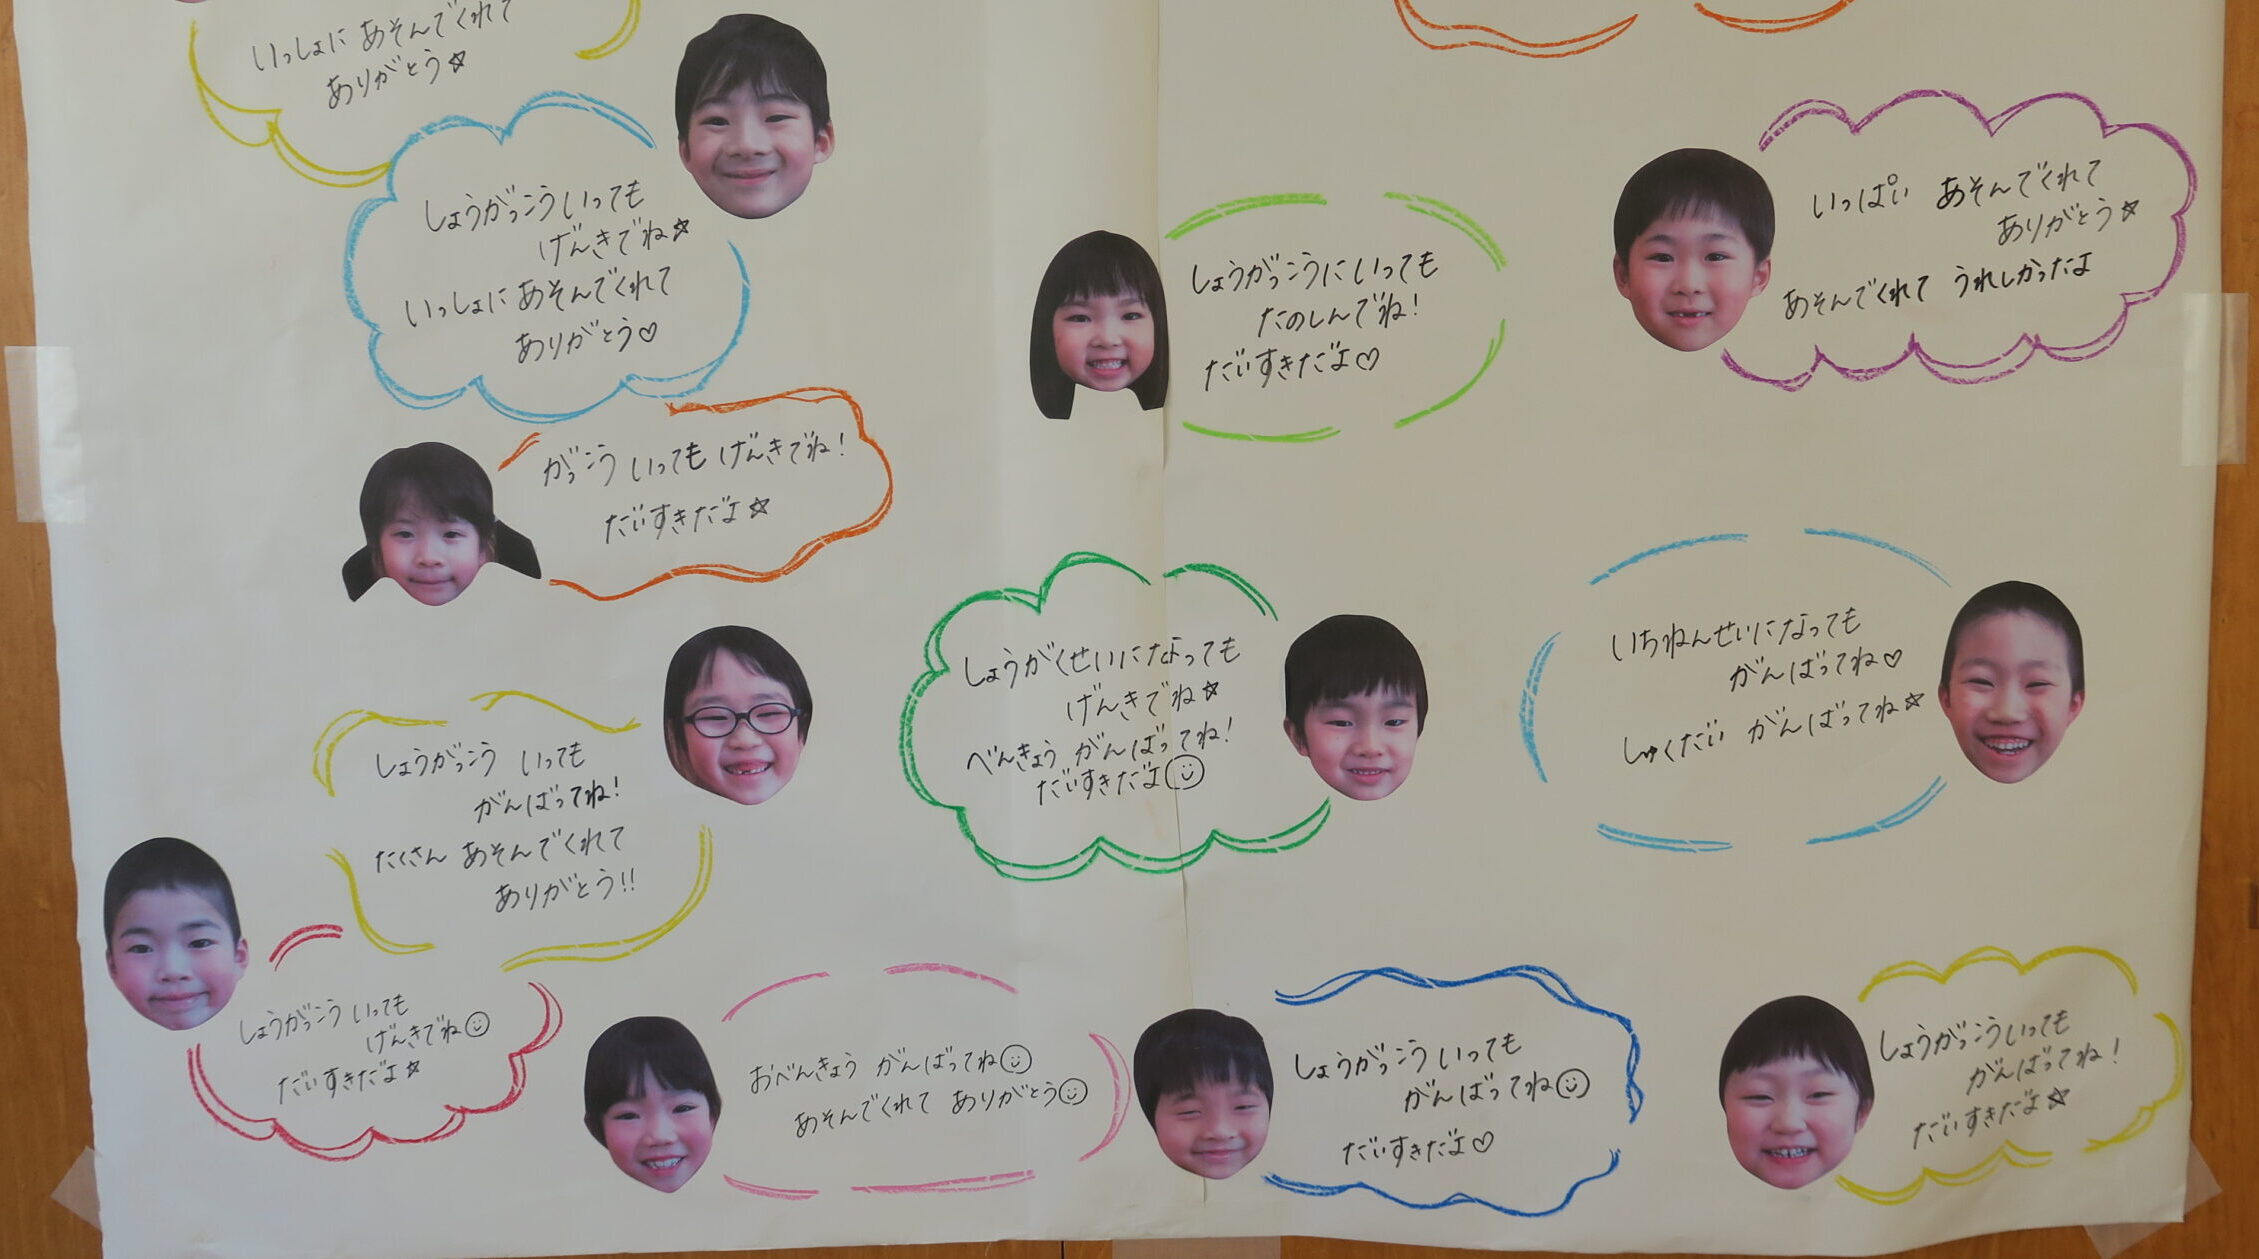 いっしょに あそんでくれて
ありがとう☆
しょうがっこういっても
げんきでね☆
いっしょに あそんでくれて
ありがとう♡
しょうがっこうにいっても
たのしんでね!
だいすきだよ♡
いっぱい あそんでくれて
ありがとう☆
あそんでくれて うれしかったよ
がっこう いっても げんきでね!
だいすきだよ☆
しょうがくせいになっても
げんきでね☆
べんきょう がんばってね!
だいすきだよ☺
いちねんせいになっても
がんばってね♡
しゅくだい がんばってね☆
しょうがっこう いっても
がんばってね!
たくさん あそんでくれて
ありがとう!!
しょうがっこう いっても
げんきでね☺
だいすきだよ☆
おべんきょう がんばってね☺
あそんでくれて ありがとう☺
しょうがっこう いっても
がんばってね☺
だいすきだよ♡
しょうがっこういっても
がんばってね!
だいすきだよ☆